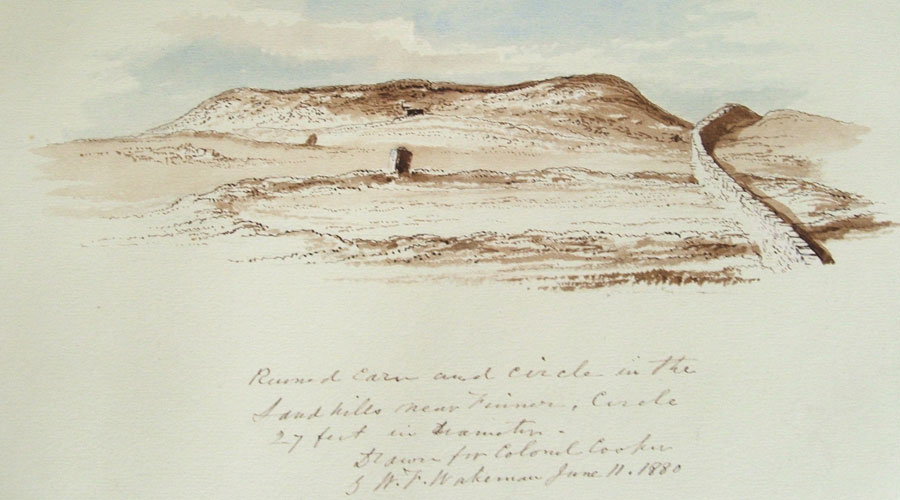 Ruined Carn and circle in the
Sand hills near Finner. Circle
27 feet in Diameter.
Drawn for Colonel Cooper
by W. F. Wakeman June 11. 1880